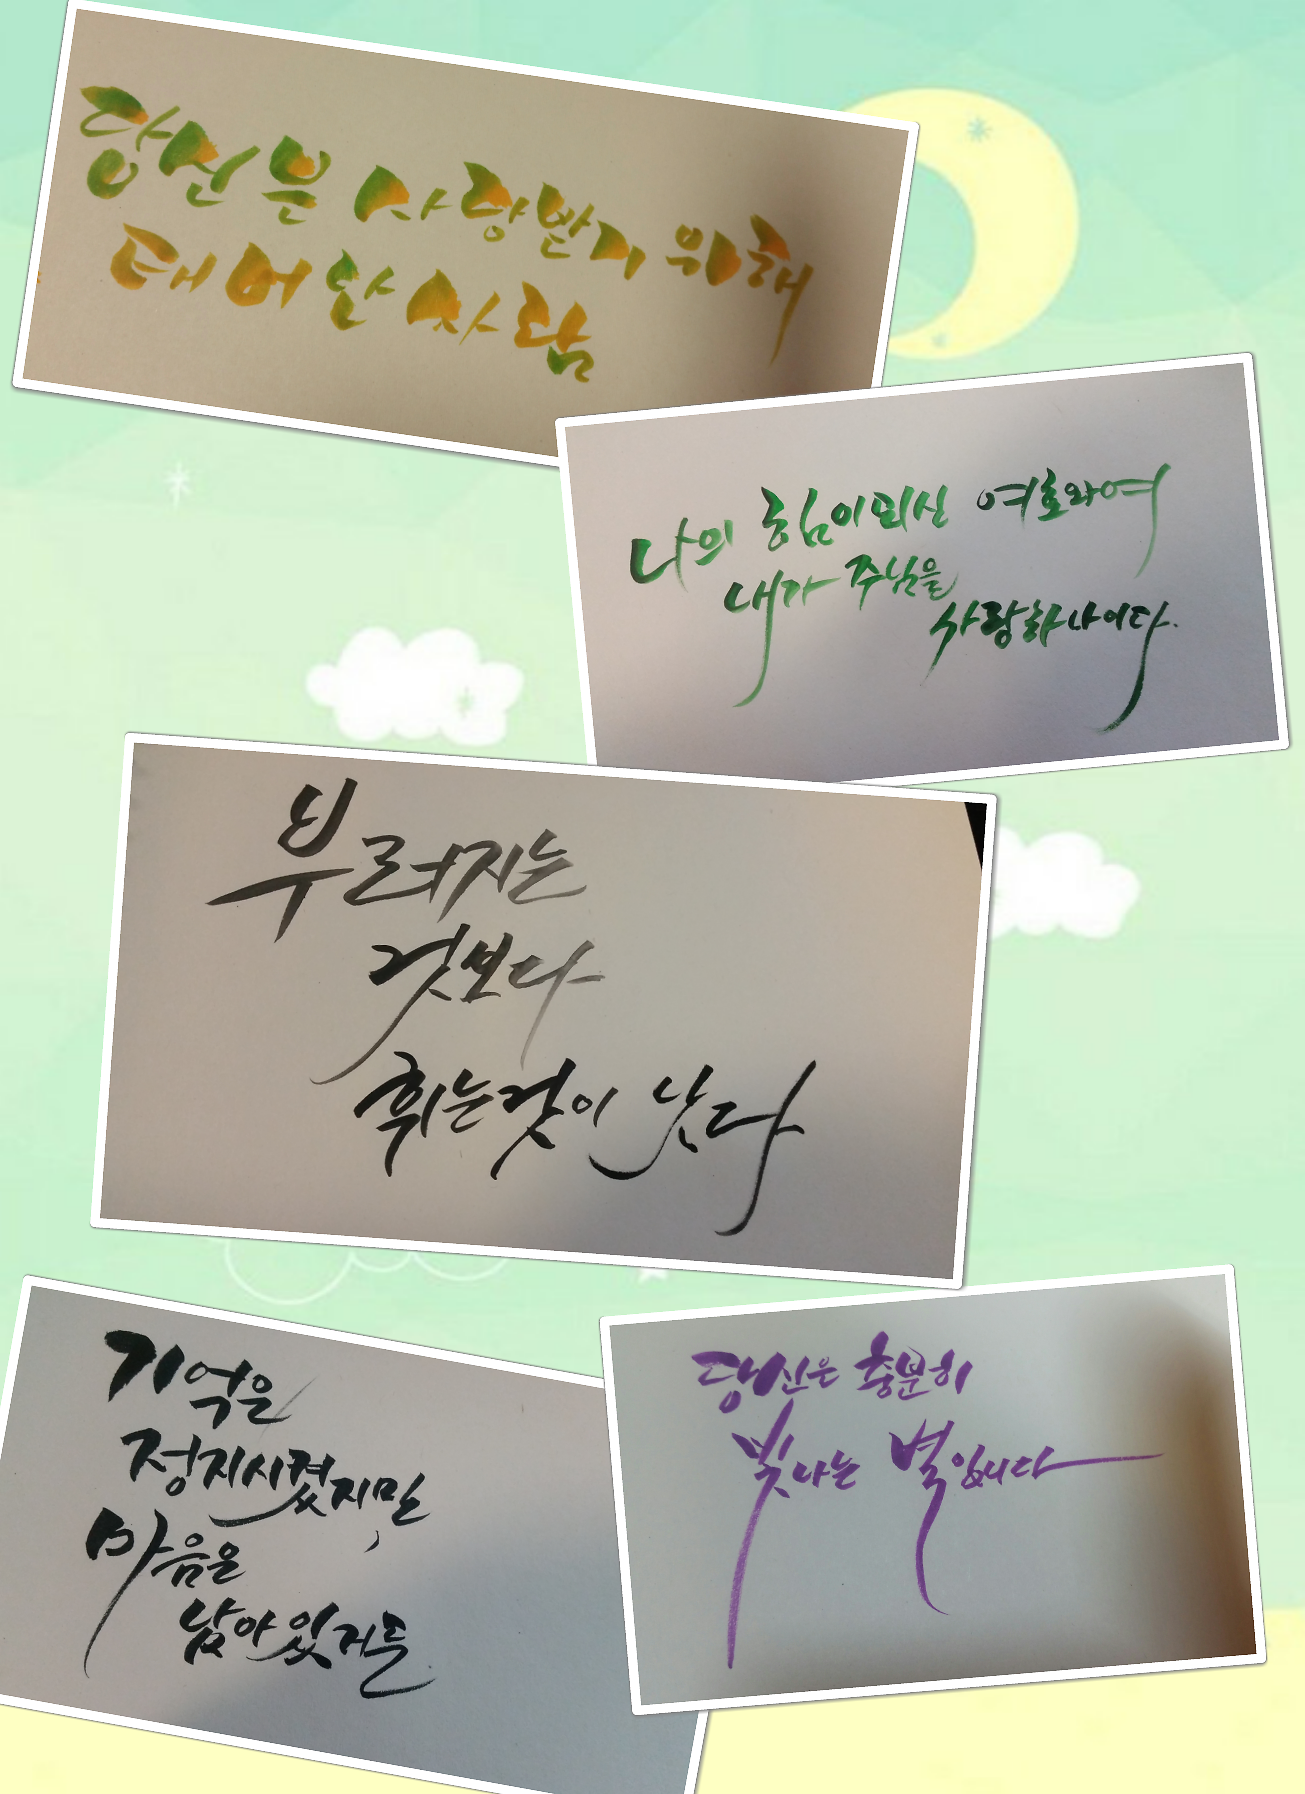 당신은 사랑받기 위해
태어난 사람
나의 힘이되신 여호와여
내가 주님을
사랑하나이다.
부러지는
것보다
휘는것이 낫다
기억은
정지시켰지만,
마음은
남아있거든
당신은 충분히
빛나는 별입니다